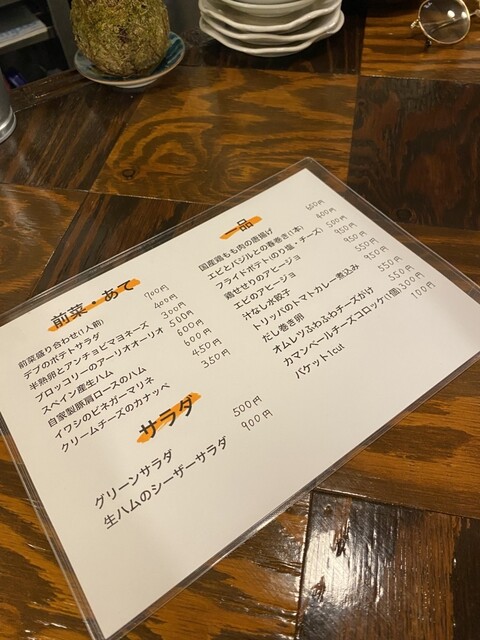 前菜・あて
前菜盛り合わせ(1人前) 700円
デブのポテトサラダ 400円
半熟卵とアンチョビマヨネーズ 300円
ブロッコリーのアーリオオーリオ 500円
スペイン産生ハム 600円
自家製豚肩ロースのハム 600円
イワシのビネガーマリネ 450円
クリームチーズのカナッペ 350円
サラダ
グリーンサラダ 500円
生ハムのシーザーサラダ 900円
一品
国産鶏もも肉の唐揚げ 600円
エビとバジルとの春巻き(1本) 400円
フライドポテト(のり塩・チーズ) 500円
鶏せせりのアヒージョ 950円
エビのアヒージョ 950円
汁なし水餃子 550円
トリッパのトマトカレー煮込み 950円
だし巻き卵 550円
オムレツふわふわチーズがけ 550円
カマンベールチーズコロッケ(1個) 300円
バケット1cut 100円